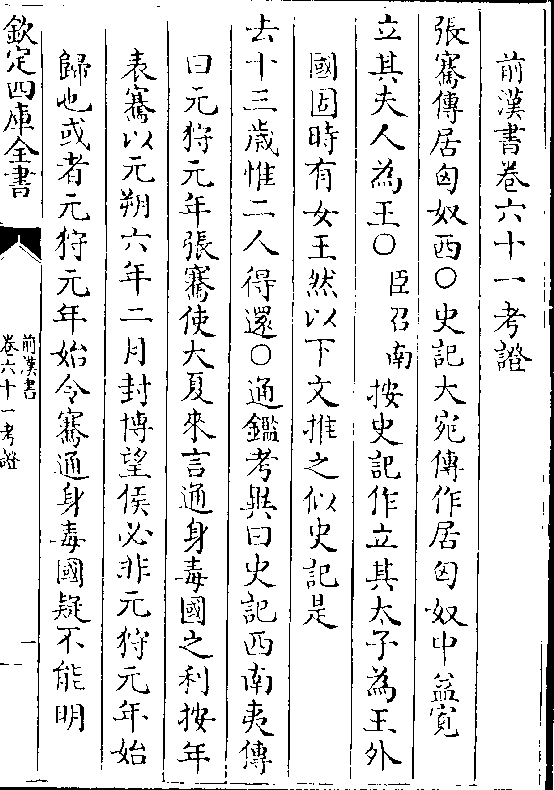 前漢書卷六十一考證
張騫傳居匈奴西○史記大宛傳作居匈奴中益寛
立其夫人為王○臣召南按史記作立其太子為王外
國固時有女王然以下文推之似史記是
去十三歲惟二人得還○通鑑考異曰史記西南夷傳
曰元狩元年張騫使大夏來言通身毒國之利按年
表騫以元朔六年二月封博望侯必非元狩元年始
歸也或者元狩元年始令騫通身毒國疑不能明
欽定四庫全書
前漢書
卷六十一考證
一